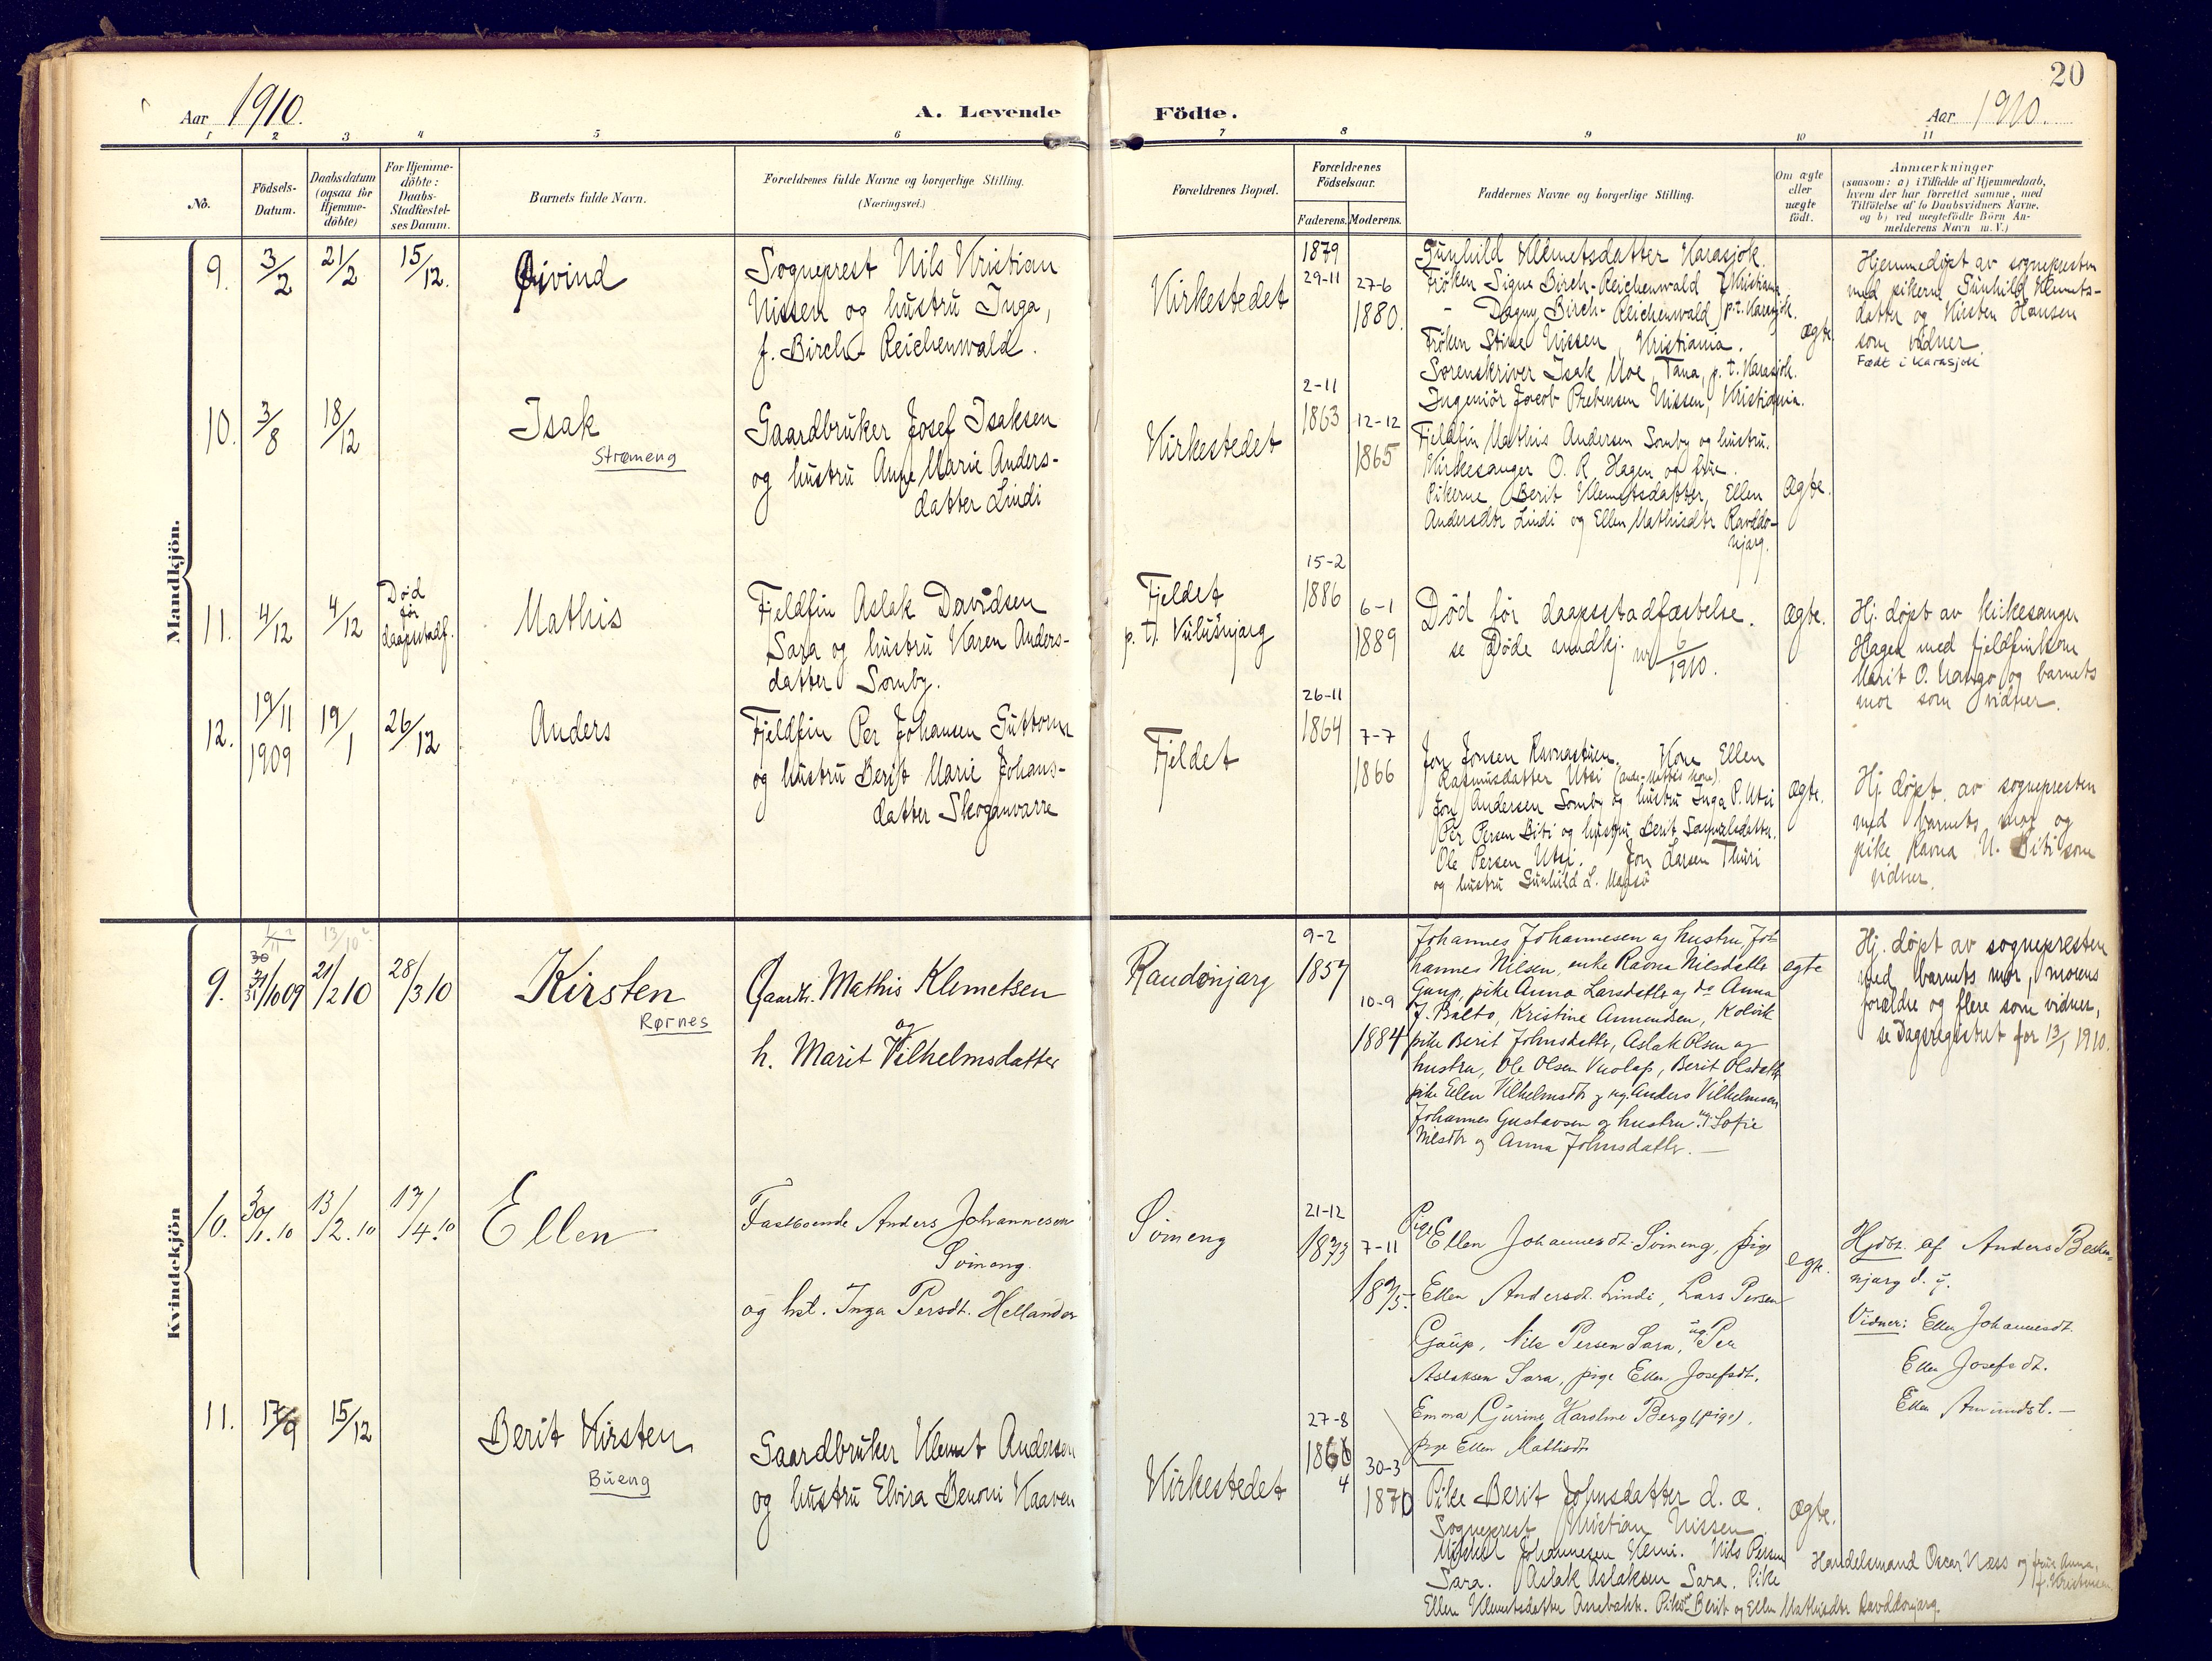 20
Aar 1910.
A. Levende Födte.
Aar 1910.
1 2 3 4 5 6 7 8 9 10 11
No.
Födsels-Datum.
Daabsdatum (ogsaa for Hjemme-döbte)
For Hjemme-döbte: Daabs-Stadfæstel-ses Datum.
Barnets fulde Navn.
Forældrenes fulde Navne og borgerlige Stilling.
(Næringsvei.)
Forældrenes Bopæl.
Forældrenes Födselsaar.
Faderens. Moderens.
Faddernes Navne og borgerlige Stilling.
Om ægte eller uægte födt.
Anmærkninger
(saasom: a) i Tilfælde af Hjemmedaab,
hvem der har forrettet samme, med
Tilföielse af to Daabsvidners Navne.
og b) ved uægtefödte Börn An-
melderens Navn m. V.)
Mandkjön.
9. 3/2 21/2 15/12. Øivind
Sogneprest Nils Kristian
Nissen og hustru Inga,
f. Birch-Reichenwald.
Kirkestedet
1879
29-11
27-6
1880.
Gunhild Klemetsdatter Karasjok.
Frøken Signe Birch-Reichenwald Kristiania
- Dagny Birch-Reichenwald p.t. Karasjok.
Frøken Stine Nissen, Kristiania.
Sorenskriver Isak Moe, Tana, p. t. Karasjok.
Ingeniør Jacob Prebensen Nissen, Kristiania.
ægte
Hjemmedøpt av sognepresten
med pikerne Gunhild Klemets-
datter og Kirsten Hansen
som vidner
Født i Karasjok
10. 3/8 18/12 Isak
Strømeng
Gaardbruker Josef Isaksen
og hustru Ane Marie Anders-
datter Lindi
Kirkestedet
2-11
1863
12-12
1865
Fjeldfin Mathis Andersen Somby og hustru.
Kirkesanger O. R. Hagen og frue.
Pikerne Berit Klemetsdatter, Ellen
Andersdtr Lindi og Ellen Mathisdtr Ravddo-
njarg.
ægte.
11. 4/12 4/12
Død
før
daapsstadf.
Mathis
Fjeldfin Aslak Davidsen
Sara og hustru Karen Anders-
datter Somby.
Fjeldet
p. t. Vulusnjarg
15-2
1886
6-1
1889
Død før daapsstadfæstelse.
se Døde mandkj. nr 6/1910.
ægte.
Hj. døpt av kirkesanger
Hagen med fjeldfinkone
Marit O. Nango og barnets
mor som vidner.
12. 19/11 1909 19/1 26/12 Anders
Fjeldfin Per Johansen Guttorm
og hustru Berit Marie Johans-
datter Skoganvarre
Fjeldet
26-11
1864
7-7
1866
Jon Jonsen Ravnastuen. Kone Ellen
Rasmusdatter Utsi
Jon Andersen Somby og hustru Inga P. Utsi
Per Persen Biti og hustru Berit Samuelsdatter.
Ole Persen Utsi. Jon Larsen Thuri
og hustru Gunhild L.
ægte.
Hj. døpt av sognepresten
med barnets mor og
pike Ravna N. Biti som
vidner.
Kvindekjön
9. 30 31/10 09 21/2 10 28/3 10 Kirsten
Rørnes
Gaardbr. Mathis Klemetsen
og
h. Marit Vilhelmsdatter
Raudonjarg
9-2
1857
10-9
1884
Johannes Johannesen og hustru, Jo-
hannes Nilsen, enke Ravna Nilsdattr
Gaup, pike Anna Larsdattr og do Anna
J. Balto, Kristine Amundsen, Kolvik
pike Berit Johnsdattr, Aslak Olsen og
hustru, Ole Olsen Vuolap, Berit Olsdattr
pike Ellen Vilhelmsdtr og ug. Anders Vilhelmsen
Johannes Gustavsen og hustru, Sofie
Nilsdtr og Anna Johnsdattr. —
egte
Hj. døpt av sognepresten
med barnets mor, morens
forældre og flere som vidner,
se Dagsregistret for 13/1 1910.
10. 30/1. 10 13/2. 10 17/4. 10 Ellen
Fastboende Anders Johannesen
Svineng.
og hst. Inga Persdt. Hellander
Svineng
21-12
1873
7-11
1875.
Pige Ellen Johannesdt. Svineng, pige
Ellen Andersdt. Lindi, Lars Persen
Gaup, Nils Persen Sara, ug. Per
Aslaksen Sara, pige Ellen Josefsdt.
Emma Gurine Karoline Berg (pige),
pige Ellen Mathisdt
egte.
Hjdbt. af Anders Besken-
njarg d. y.
Vidner: Ellen Johannesdt.
Ellen Josefsdt.
Ellen Amundst. —
11. 17/9 15/12 Berit Kirsten
Bueng
Gaardbruker Klemet Andersen
og hustru Elvira Benoni Kaaven
Kirkestedet
27-8
1866
4
30-3
1870
Pike Berit Johnsdatter d. æ.
Sogneprest Kristian Nissen.
Mikkel Johannesen Nemi. Nils Persen
Sara. Aslak Aslaksen Sara. Pike
Ellen Klemetsdatter Anebakt. Piker Berit og Ellen Mathisdtr Ravddonjarg.
ægte.
Handelsmand Oscar Næss og frue Anna,
f. Kristensen